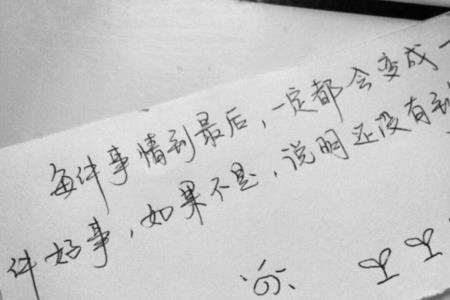 每件事情到最后，一定都会变成一
件好事，如果不是，说明还没有到